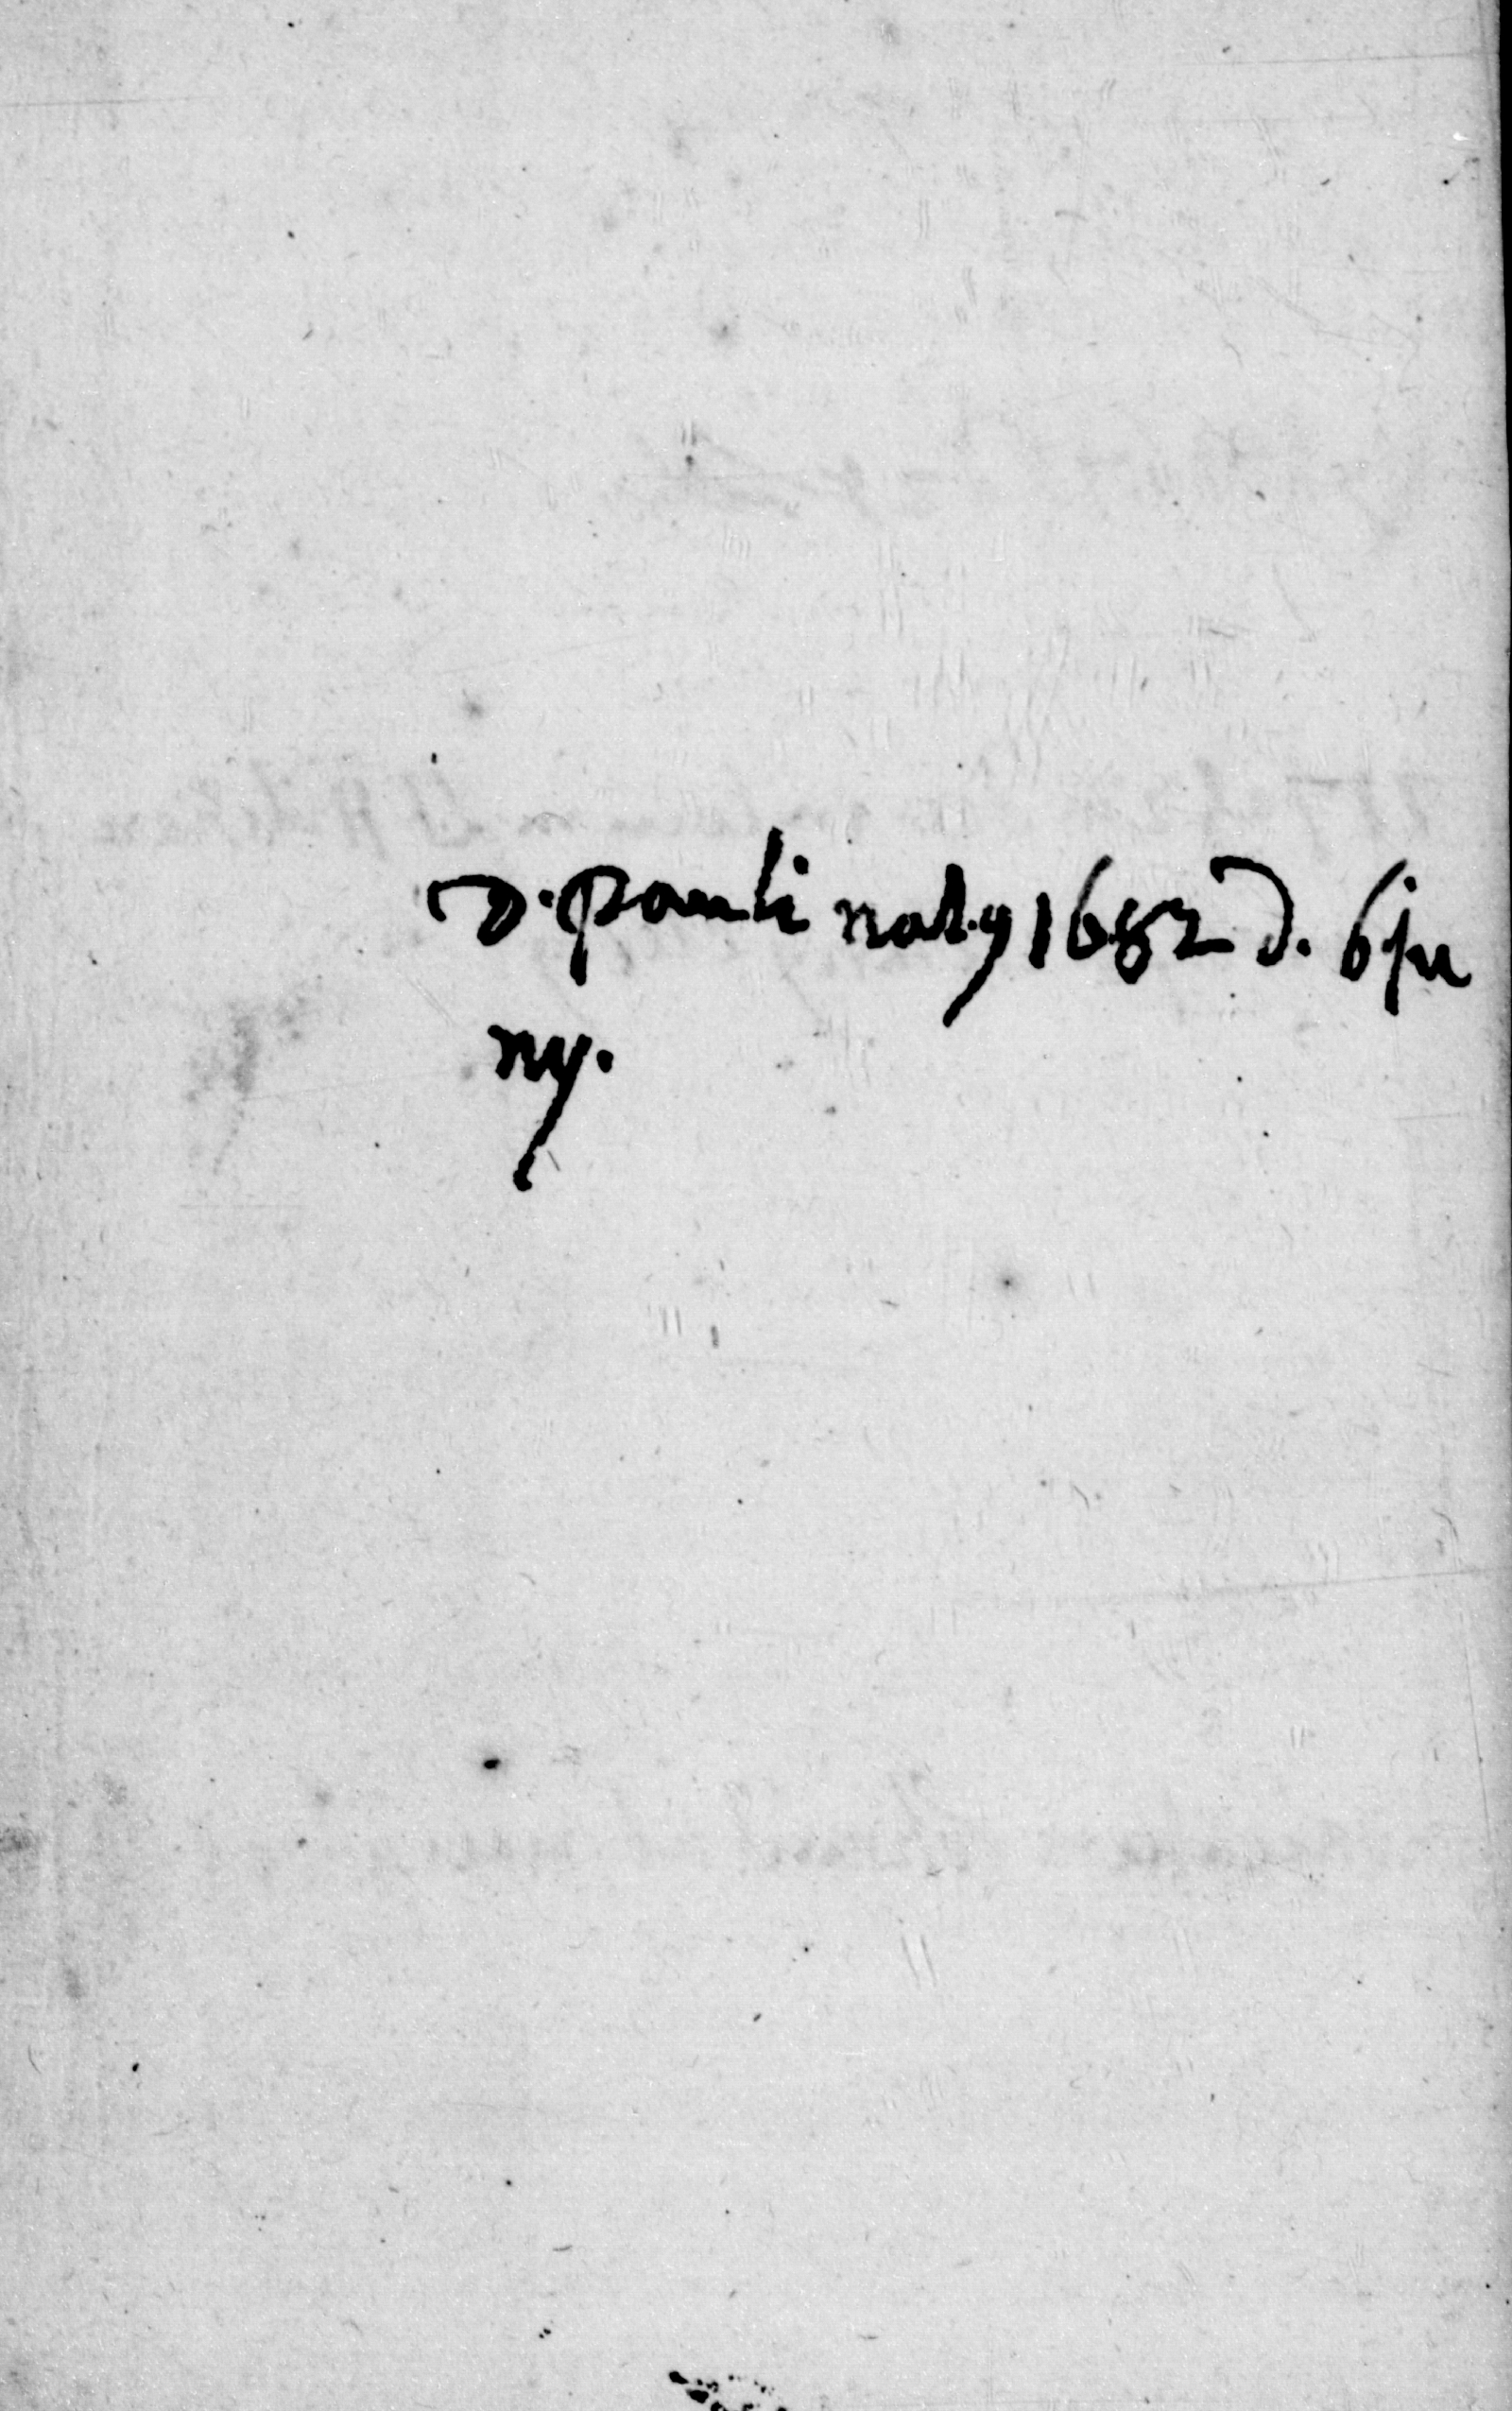 D. pauli nat.9 1682 d. 6 ju
ny.